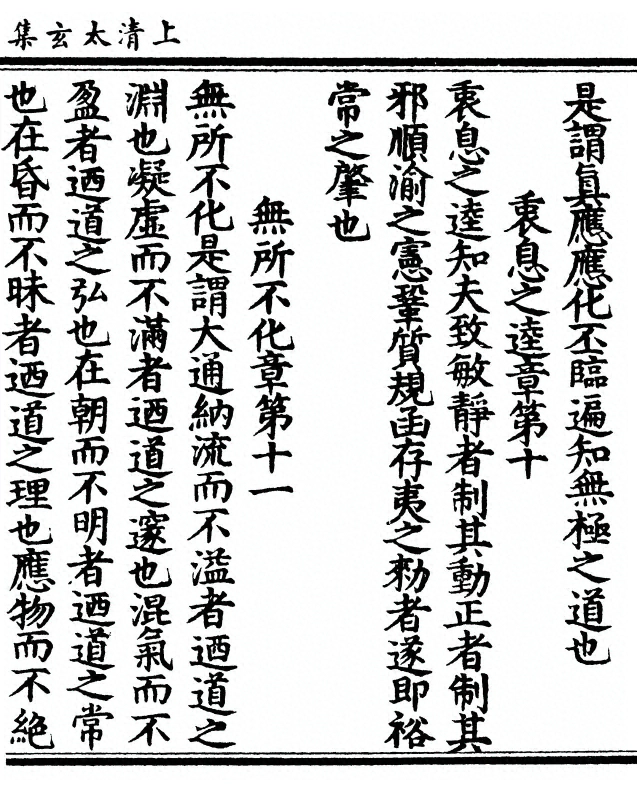 上清太玄集
是謂真應應化丕臨遍知無極之道也
衷息之逵章第十
衷息之逵知夫致敏靜者制其動正者制其
邪順渝之憲鞏質規函存夷之勑者遂即裕
常之肇也
無所不化章第十一
無所不化是謂大通納流而不溢者迺道之
淵也凝虛而不滿者迺道之邃也混氣而不
盈者迺道之弘也在朝而不明者迺道之常
也在昏而不昧者迺道之理也應物而不絕